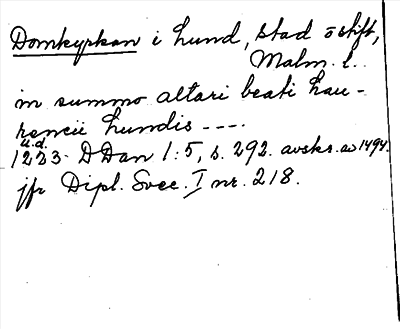 Domkyrkan i Lund, stad o stift,
Malm. l.
in summo altari beati Lau-
rencii Lundis ----
u.d.
1223. DDan 1:5, s. 292. avskr. av 1494.
jfr Dipl. Svec. I nr. 218.